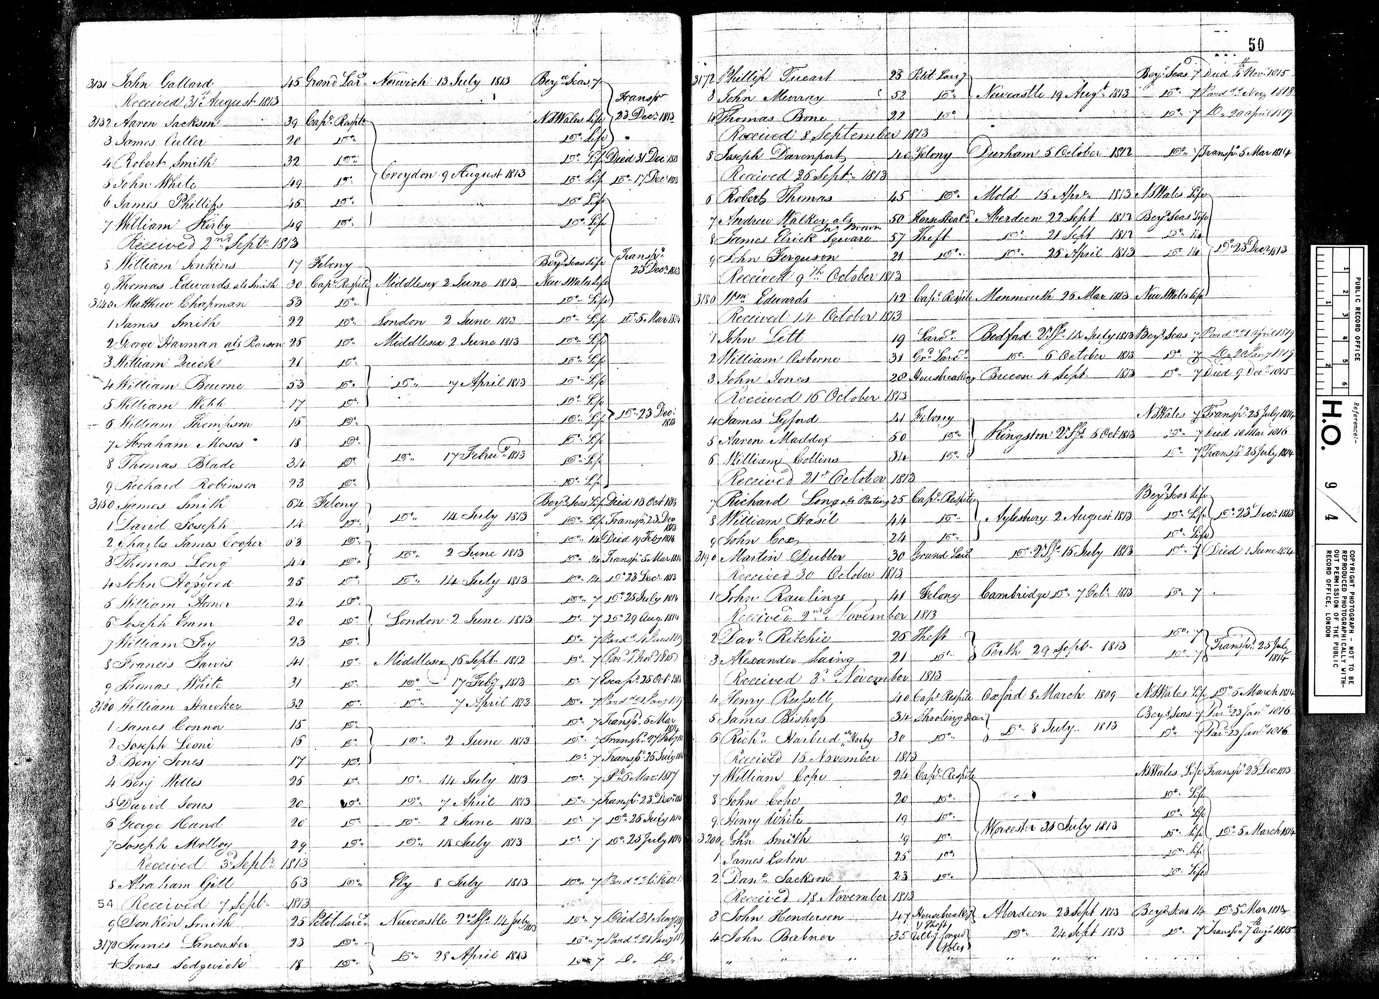 3131 John Gallard 45 Grand Larc. Norwich 13 July 1813 Beyn. Seas 7
Received 31st August 1813
Transpd. 23 Decr. 1813
3132 Aaron Jackson 39 Capl. Respite NSWales Life
3 James Culler 20 Do. Do. Life
4 Robert Smith 32 Do. Do. Life Died 31 Dec
5 John White 49 Do. Croydon 9 August 1813 Do. Life Do. 17 Dec
6 James Phillips 45 Do. Do. Life
7 William Kirby 49 Do. Do. Life
Received 2nd Septr. 1813
8 William Jenkins 17 Felony Beyd. Seas Life Transpd. 23 Decr. 1813
9 Thomas Edwards als Smith 30 Capl. Respite Middlesex 2 June 1813 New Wales Life
3140 Matthew Chapman 53 Do. Do. Life
1 James Smith 22 Do. London 2 June 1813 Do. Life Do. 5 Mar 1814
2 George Harman als Pearson 25 Do. Middlesex 2 June 1813 Do. Life
3 William Quick 21 Do. Do. Life
4 William Bourne 53 Do. Do. 7 April 1813 Do. Life
5 William Webb 17 Do. Do. Life
6 William Thompson 15 Do. Do. Life Do. 23 Decr. 1813
7 Abraham Moses 18 Do. Do. Life
8 Thomas Blade 34 Do. Do. 17 Febry. 1813 Do. Life
9 Richard Robinson 23 Do. Do. Life
3150 James Smith 64 Felony Beyd. Seas Life Died 13 Oct
1 David Joseph 14 Do. Do. 14 July 1813 Do. Life Transpd. 23 Dec 1813
2 Charles James Cooper 63 Do. Do. 14 Died 19 Feb 1814
3 Thomas Long 44 Do. Do. 2 June 1813 Do. 14 Transpd. 5 Mar 1814
4 John Hopwood 25 Do. Do. 14 July 1813 Do. 14 Do. 23 Dec. 1813
5 William 24 Do. Do. 7 Do. 25 July 1814
6 Joseph 20 Do. London 2 June 1813 Do. 7 Do. 29 Aug. 1814
7 William 23 Do. Do. 7 Pard.
8 Francis Jarvis 41 Do. Middlesex 16 Sept. 1812 Do. 7
9 Thomas White 31 Do. Do. 17 Feby. 1813 Do. 7 Escapd. 25 Oct
3160 William Hawker 32 Do. Do. 7 April 1813 Do. 7 Pard.
1 James Connor 15 Do. Do. 7 Transpd. 5 Mar 1814
2 Joseph Leoni 16 Do. Do. 2 June 1813 Do. 7 Transpd. 27
3 Benj Jones 17 Do. Do. 7 Transpd. 25 July
4 Benj Willis 25 Do. Do. 14 July 1813 Do. 7
5 David Jones 20 Do. Do. 7 April 1813 Do. 7 Transpd. 23 Decr.
6 George Hand 20 Do. Do. 2 June 1813 Do. 7 Do. 25 July 1814
7 Joseph Molloy 29 Do. Do. 14 July 1813 Do. 7 Do. 25 July 1814
Received 3d. Septr. 1813
8 Abraham Gill 63 Do. Ely 8 July 1813 Do. 7 Pard.
54 Received 7 Sept. 1813
9 Donkin Smith 25 Petit Larc. Newcastle 14 July 1813 Do. 7 Died 31
3170 James Lancaster 23 Do. Do. 7 Pard.
1 Jonas Sedgwick 18 Do. Do. 28 April 1813 Do. 7 Do. Do.
50
3172 Phillip Trecart 23 Petit Larcy. Beyd. Seas 7 Died 4th Novr. 1815
3 John Murray 52 Do. Newcastle 19 Augt. 1813 Do. 7 Pard. 1818
4 Thomas Bone 22 Do. Do. 7 Do. 20 April 1819
Received 8 September 1813
5 Joseph Davenport 40 Felony Durham 5 October 1812 Do. 7 Transpd. 5 Mar 1814
Received 25 Sept. 1813
6 Robert Thomas 45 Do. Mold 15 Apr. 1813 NSWales Life
7 Andrew Walker als Jno. Brown 50 Horse Stealg. Aberdeen 22 Sept 1812 Beyd. Seas Life
8 James Elrick Squaire 57 Theft Do. 21 Sept 1812 Do. 14
9 John Ferguson 21 Do. Do. 25 April 1813 Do. 14 Do. 23 Decr. 1813
Received 9th October 1813
3180 Wm. Edwards 42 Capl. Respite Monmouth 26 Mar 1813 New Wales Life
Received 14 October 1813
1 John Lett 19 Larc. Bedford 14 July 1813 Beyd. Seas 7 Pard. 21 April 1819
2 William Osborne 31 Gd. Larc. Do. 6 October 1813 Do. 7
3 John Jones 20 Housebreaking Brecon 4 Sept 1813 Do. 7 Died 9 Decr. 1815
Received 16 October 1813
4 James Lyford 41 Felony NSWales 7 Transpd. 25 July 1814
5 Aaron Maddox 50 Do. Kingston 5 Oct 1813 Do. 7 Died 10 Mar 1816
6 William Collins 34 Do. Do. 7 Transpd. 25 July 1814
Received 21st October 1813
7 Richard Long als 25 Capl. Respite Beyd. Seas Life
8 William Hasil 44 Do. Aylesbury 2 August 1813 Do. Life Do. 23 Decr. 1813
9 John Cox 24 Do. Do. Life
3190 Martin Dubber 30 Grand Larc. Do. 15 July 1813 Do. 7 Died 1 June 1824
Received 30 October 1813
1 John Rawlings 41 Felony Cambridge Do. 7 Oct. 1813 Do. 7
Received 2nd November 1813
2 Davd. Ritchie 26 Theft Do. 7
3 Alexander Laing 21 Do. Perth 29 Sept. 1813 Do. 7 Transpd. 25 July 1814
Received 3d. November 1813
4 Henry Russell 40 Capl. Respite Oxford 8 March 1809 NSWales Life Do. 5 March 1814
5 James Bishop 34 Shooting Deer Beyd. Seas 7 Par. 23 Jany. 1816
6 Richd. Harbud 30 Do. Do. 8 July 1813 Do. 7 Par. 23 Jany. 1816
Received 15 November 1813
7 William Cope 24 Capl. Respite NSWales Life Transpd. 23 Dec 1813
8 John Cope 20 Do. Do. Life
9 Henry White 19 Do. Do. Life
3200 John Smith 19 Do. Worcester 31 July 1813 Do. Life Do. 5 March 1814
1 James Eaton 25 Do. Do. Life
2 Danl. Jackson 23 Do. Do. Life
Received 18 November 1813
3 John Henderson 47 Housebreakg. & Theft Aberdeen 23 Sept 1813 Beyd. Seas 14 Do. 5 Mar
4 John Bubner 35 Uttg. forged Notes Do. 24 Sept 1813 Do. 7 Transpd. 7th Augt.
PUBLIC RECORD OFFICE
1 2 3 4 5 6
Reference:-
H.O. 9/4
COPYRIGHT PHOTOGRAPH - NOT TO BE REPRODUCED PHOTOGRAPHICALLY WITHOUT PERMISSION OF THE PUBLIC RECORD OFFICE, LONDON